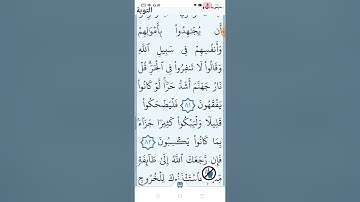 التوبة
أَن يُجَٰهِدُوا۟ بِأَمْوَٰلِهِمْ
وَأَنفُسِهِمْ فِى سَبِيلِ ٱللَّهِ
وَقَالُوا۟ لَا تَنفِرُوا۟ فِى ٱلْحَرِّ ۗ قُلْ
نَارُ جَهَنَّمَ أَشَدُّ حَرًّا ۚ لَّوْ كَانُوا۟
يَفْقَهُونَ ٨١ فَلْيَضْحَكُوا۟
قَلِيلًا وَلْيَبْكُوا۟ كَثِيرًا جَزَآءًۢ
بِمَا كَانُوا۟ يَكْسِبُونَ ٨٢
فَإِن رَّجَعَكَ ٱللَّهُ إِلَىٰ طَآئِفَةٍ
فَٱسْتَـْٔذَنُوكَ لِلْخُرُوجِ